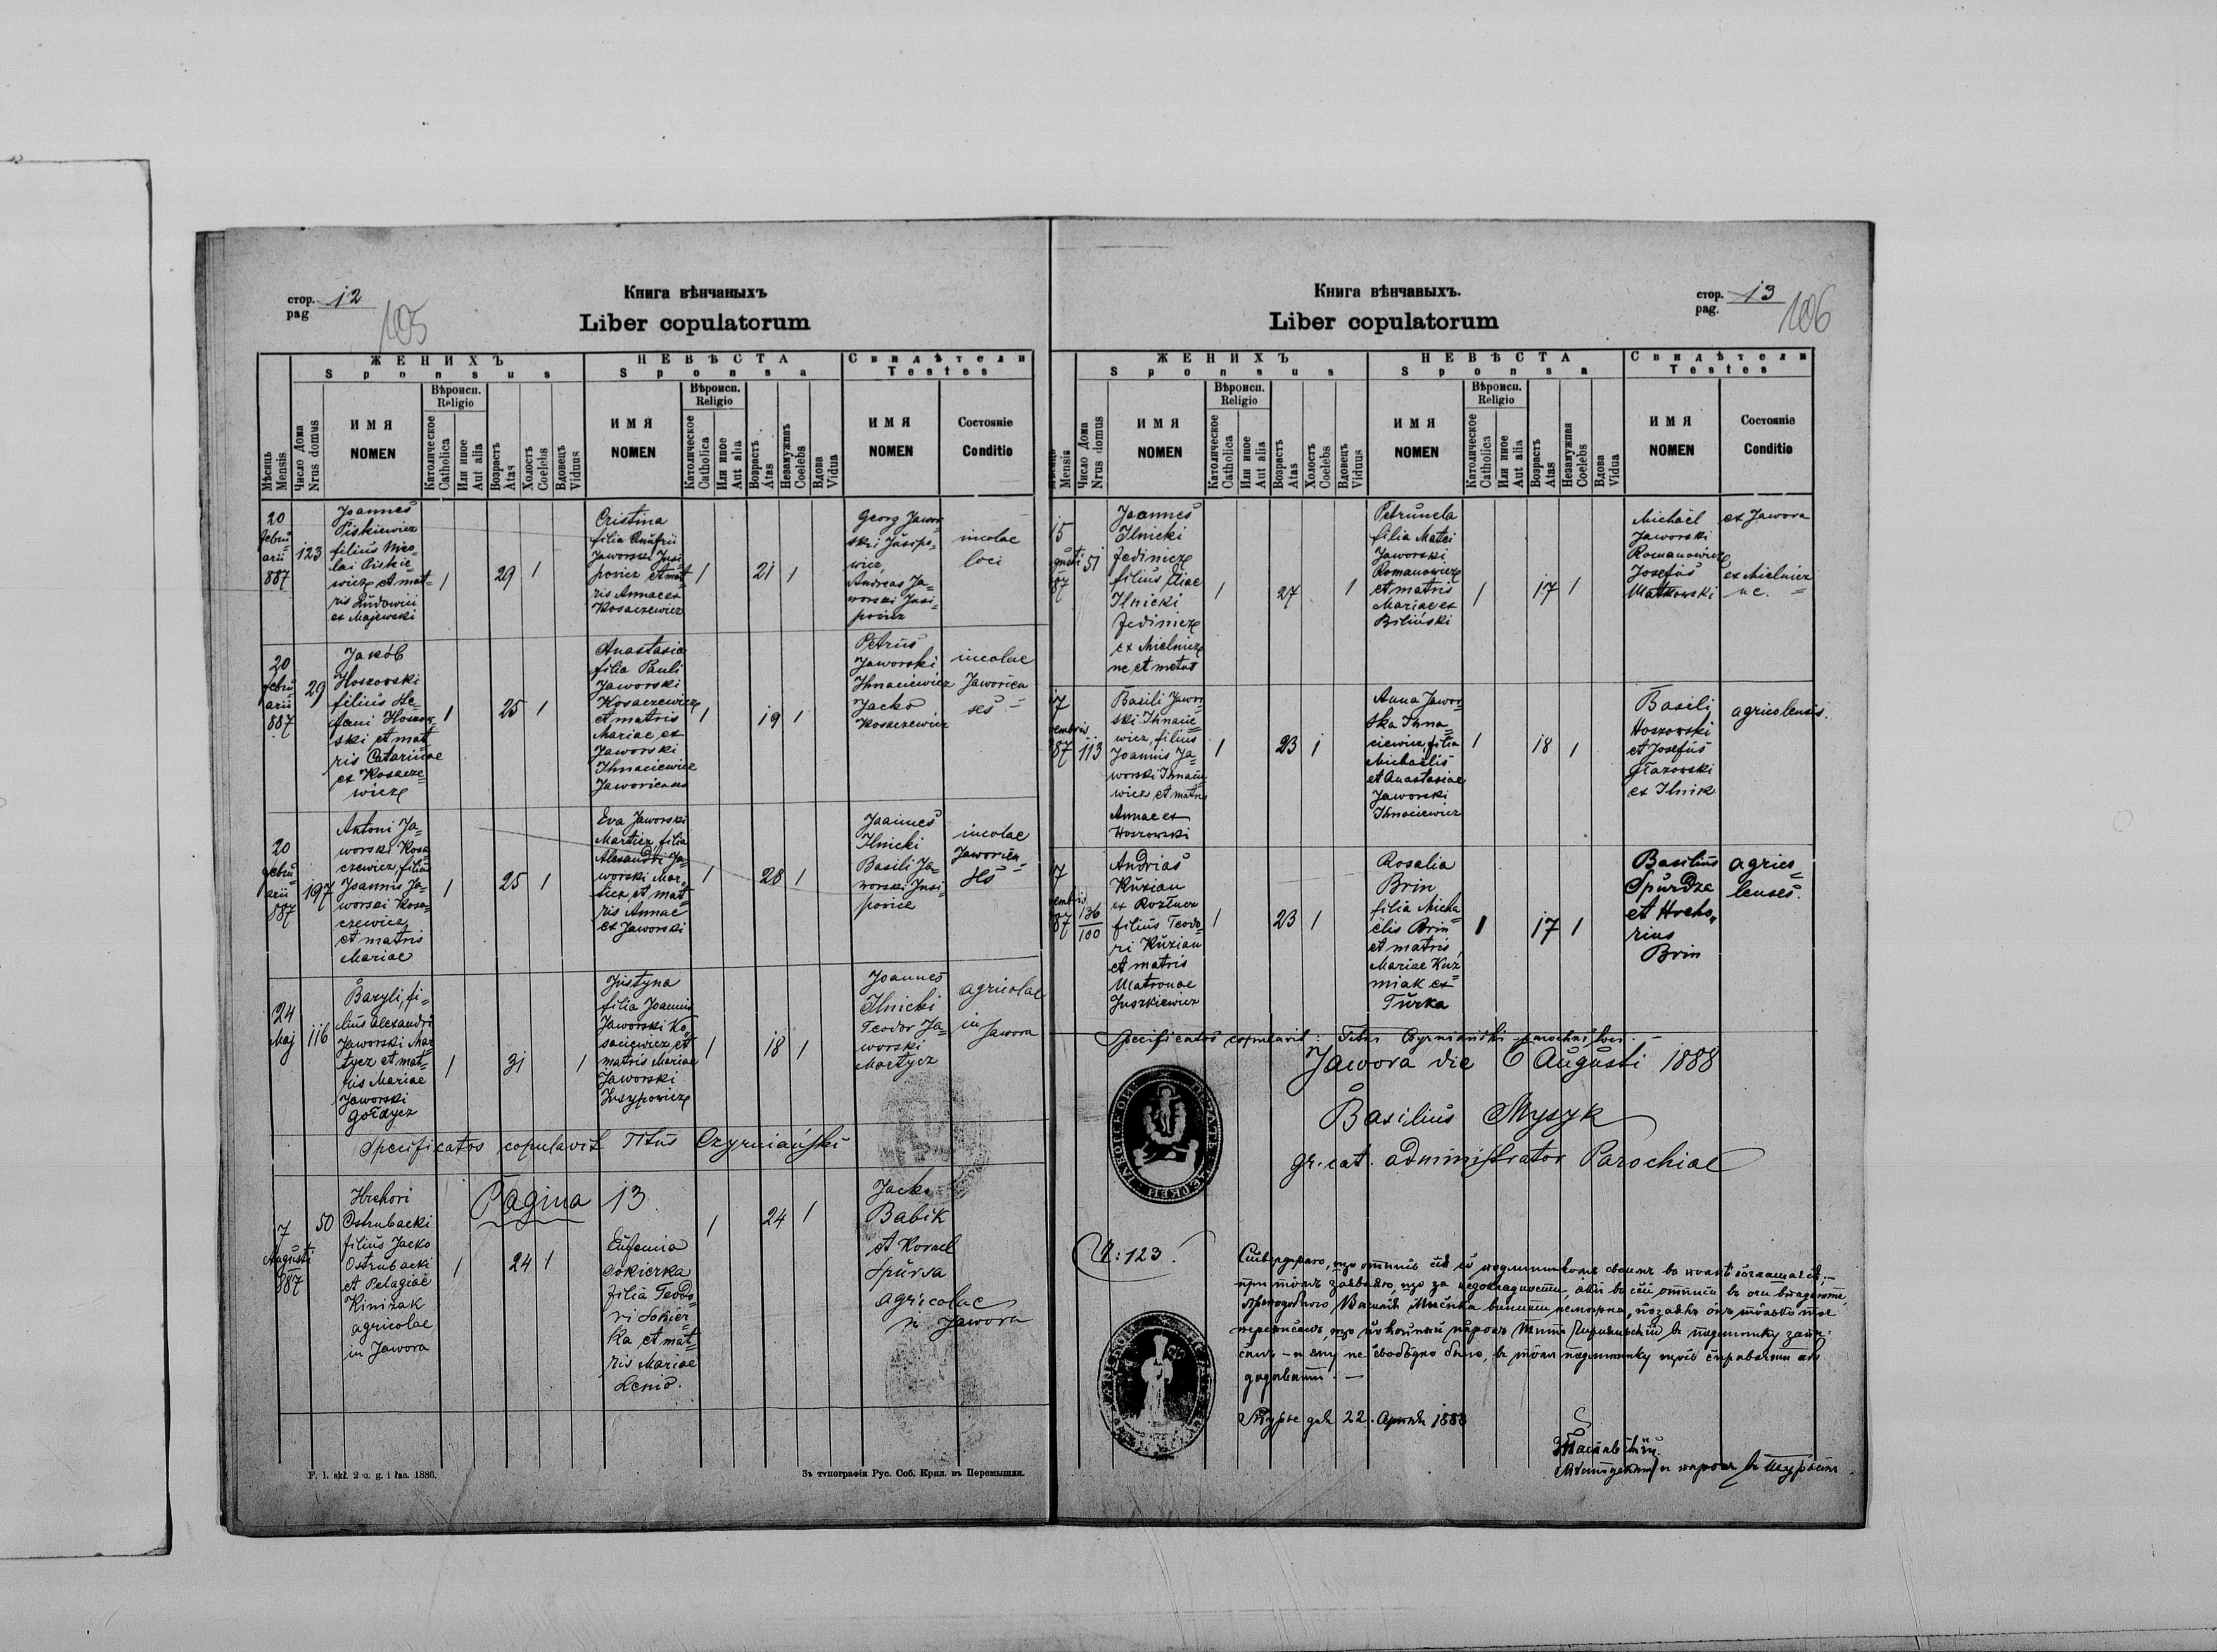 стор. 12
pag
105
Книга вѣнчаныхъ
Liber copulatorum
ЖЕНИХЪ
Sponsus
НЕВѢСТА
Sponsa
Свидѣтели
Testes
Мѣсяць
Mensis
Число Дома
Nrus domus
ИМЯ
NOMEN
Вѣроисп.
Religio
Католическое
Catholica
Или иное
Aut alia
Возрастъ
Atas
Холостъ
Coelebs
Вдовецъ
Viduus
ИМЯ
NOMEN
Вѣроисп.
Religio
Католическое
Catholica
Или иное
Aut alia
Возрастъ
Atas
Незамужняъ
Coelebs
Вдова
Vidua
ИМЯ
NOMEN
Состояніе
Conditio
20
febru=
arii
887
123
Joannes
Piskiewicz
filius Nico=
lai Piskie=
wicz et mat=
ris Ludowici
ex Majewski
1
29
1
Cristina
filia Onufrii
Jaworski Jusi=
powicz et mat
ris Annae ex
Kosaczewicz
1
21
1
Georg Jawor=
ski Jusipo=
wicz,
Andreas Ja=
worski Jusi=
powicz
incolae
loci
20
febru=
arii
887
29
Jakób
Hoszowski
filius Ste=
fani Hoszow=
ski et mat=
ris Catarinae
ex Kosacze=
wicz
1
25
1
Anastasia
filia Pauli
Jaworski
Kosaczewicz
et matris
Mariae ex
Jaworski
Ihnaciewicz
Jaworienses
1
19
1
Petrus
Jaworski
Ihnaciewicz
Jacko
Kosaczewicz
incolae
Jaworien
ses
20
febru=
arii
887
197
Antoni Ja=
worski Kosa=
czewicz, filius
Joannis Ja=
worski Kosa=
czewicz
et matris
Mariae
1
25
1
Eva Jaworski
Marticz, filia
Alexandri Ja=
worski Mar=
ticz, et mat=
ris Annae
ex Jaworski
1
28
1
Joannes
Ilnicki
Basili Ja=
worski Jusi=
powicz
incolae
Jaworien=
ses
24
Maj
116
Bazyli, fi=
lius Alexandri
Jaworski Mar
tycz et mat=
ris Mariae
Jaworski
Gołdycz
1
31
1
Justyna
filia Joannis
Jaworski Ko=
saciewicz et
matris Mariae
Jaworski
Jusypowicz
1
18
1
Joannes
Ilnicki
Teodor Ja=
worski
Martycz
agricolae
in Jawora
Specificatos copulavit Titus Czyrniański
Pagina 13
7
Augusti
887
50
Hrehori
Ostrubacki
filius Jacko
Ostrubacki
et Pelagiae
Kinizak
agricolae
in Jawora
1
24
1
Eufemia
Sokierka
filia Teodo=
ri Sokier=
ka et mat=
ris Mariae
Lenio.
1
24
1
Jacko
Babik
et Kornel
Spursa
agricolae
n Jawora
F. l. skł. 2 o. g. i łac. 1886.
Зъ типографіи Рус. Соб. Крил. въ Перемышли.
стор. 13
pag.
106
Книга вѣнчаныхъ.
Liber copulatorum
ЖЕНИХЪ
Sponsus
НЕВѢСТА
Sponsa
Свидѣтели
Testes
Mensis
Число Дома
Nrus domus
ИМЯ
NOMEN
Вѣроисп.
Religio
Католическое
Catholica
Или иное
Aut alia
Возрастъ
Atas
Холостъ
Coelebs
Вдовецъ
Viduus
ИМЯ
NOMEN
Вѣроисп.
Religio
Католическое
Catholica
Или иное
Aut alia
Возрастъ
Atas
Незамужная
Coelebs
Вдова
Vidua
ИМЯ
NOMEN
Состояніе
Conditio
15
gusti
87
51
Joannes
Ilnicki
Jedinicz
filius Eliae
Ilnicki
Jedinicz
ex Mielnicz
ne, et
1
27
1
Petrunela
filia Matei
Jaworski
Romanowicz
et matris
Mariae ex
Biliński
1
17
1
Michaël
Jaworski
Romanowicz
Josefus
Matkowski
ex Jawora
ex Mielnicz
ne.
17
embris
87
113
Basili Jawor=
ski Ihnacie=
wicz, filius
Joannis Ja=
worski Ihnacie
wicz et matris
Annae ex
Hoszowski
1
23
1
Anna Jawor=
ska Ihna=
ciewicz, filia
Michaëlis
et Anastasiae
Jaworski
Ihnaciewicz
1
18
1
Basili
Hoszowski
et Josefus
Głazowski
ex Ilnik
agricolensis.
17
embris
87
136
100
Andrias
Kuzian
ex Rozłucz
filius Teodo=
ri Kuzian
et matris
Matronae
Juszkiewicz
1
23
1
Rosalia
Brin
filia Micha
ëlis Brin
et matris
Mariae Kuź=
miak ex
Turka
1
17
1
Basilius
Spurdza
et Hreho=
rius
Brin
agrico=
lenses.
Specificatos copulavit: Titus Czyrniański parochus loci.
Jawora die 6 Augusti 1888
Basilius Myszyk
gr. cat. administrator Parochiae
Ч: 123.
22. 1888